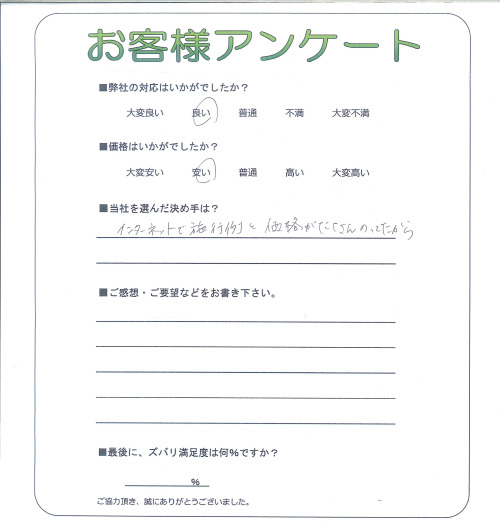 お客様アンケート
■弊社の対応はいかがでしたか？
大変良い 良い 普通 不満 大変不満
■価格はいかがでしたか？
大変安い 安い 普通 高い 大変高い
■当社を選んだ決め手は？
インターネットで施行例と価格がたくさんのってたから
■ご感想・ご要望などをお書き下さい。
■最後に、ズバリ満足度は何％ですか？
％
ご協力頂き、誠にありがとうございました。